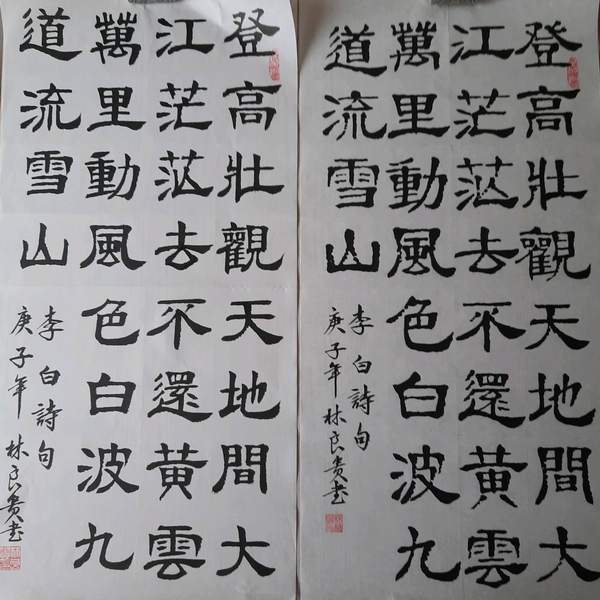 登高壯觀天地間大
江茫茫去不還黃雲
萬里動風色白波九
道流雪山
李白詩句
庚子年 林良貴書
登高壯觀天地間大
江茫茫去不還黃雲
萬里動風色白波九
道流雪山
李白詩句
庚子年 林良貴書